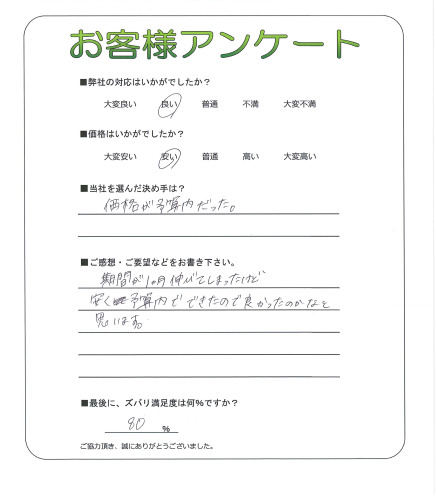 お客様アンケート
■弊社の対応はいかがでしたか？
大変良い 良い 普通 不満 大変不満
■価格はいかがでしたか？
大変安い 安い 普通 高い 大変高い
■当社を選んだ決め手は？
価格が予算内だった。
■ご感想・ご要望などをお書き下さい。
期間が1ヶ月伸びてしまったけど
安く予算内でできたので良かったのかなと
思います。
■最後に、ズバリ満足度は何%ですか？
80 %
ご協力頂き、誠にありがとうございました。